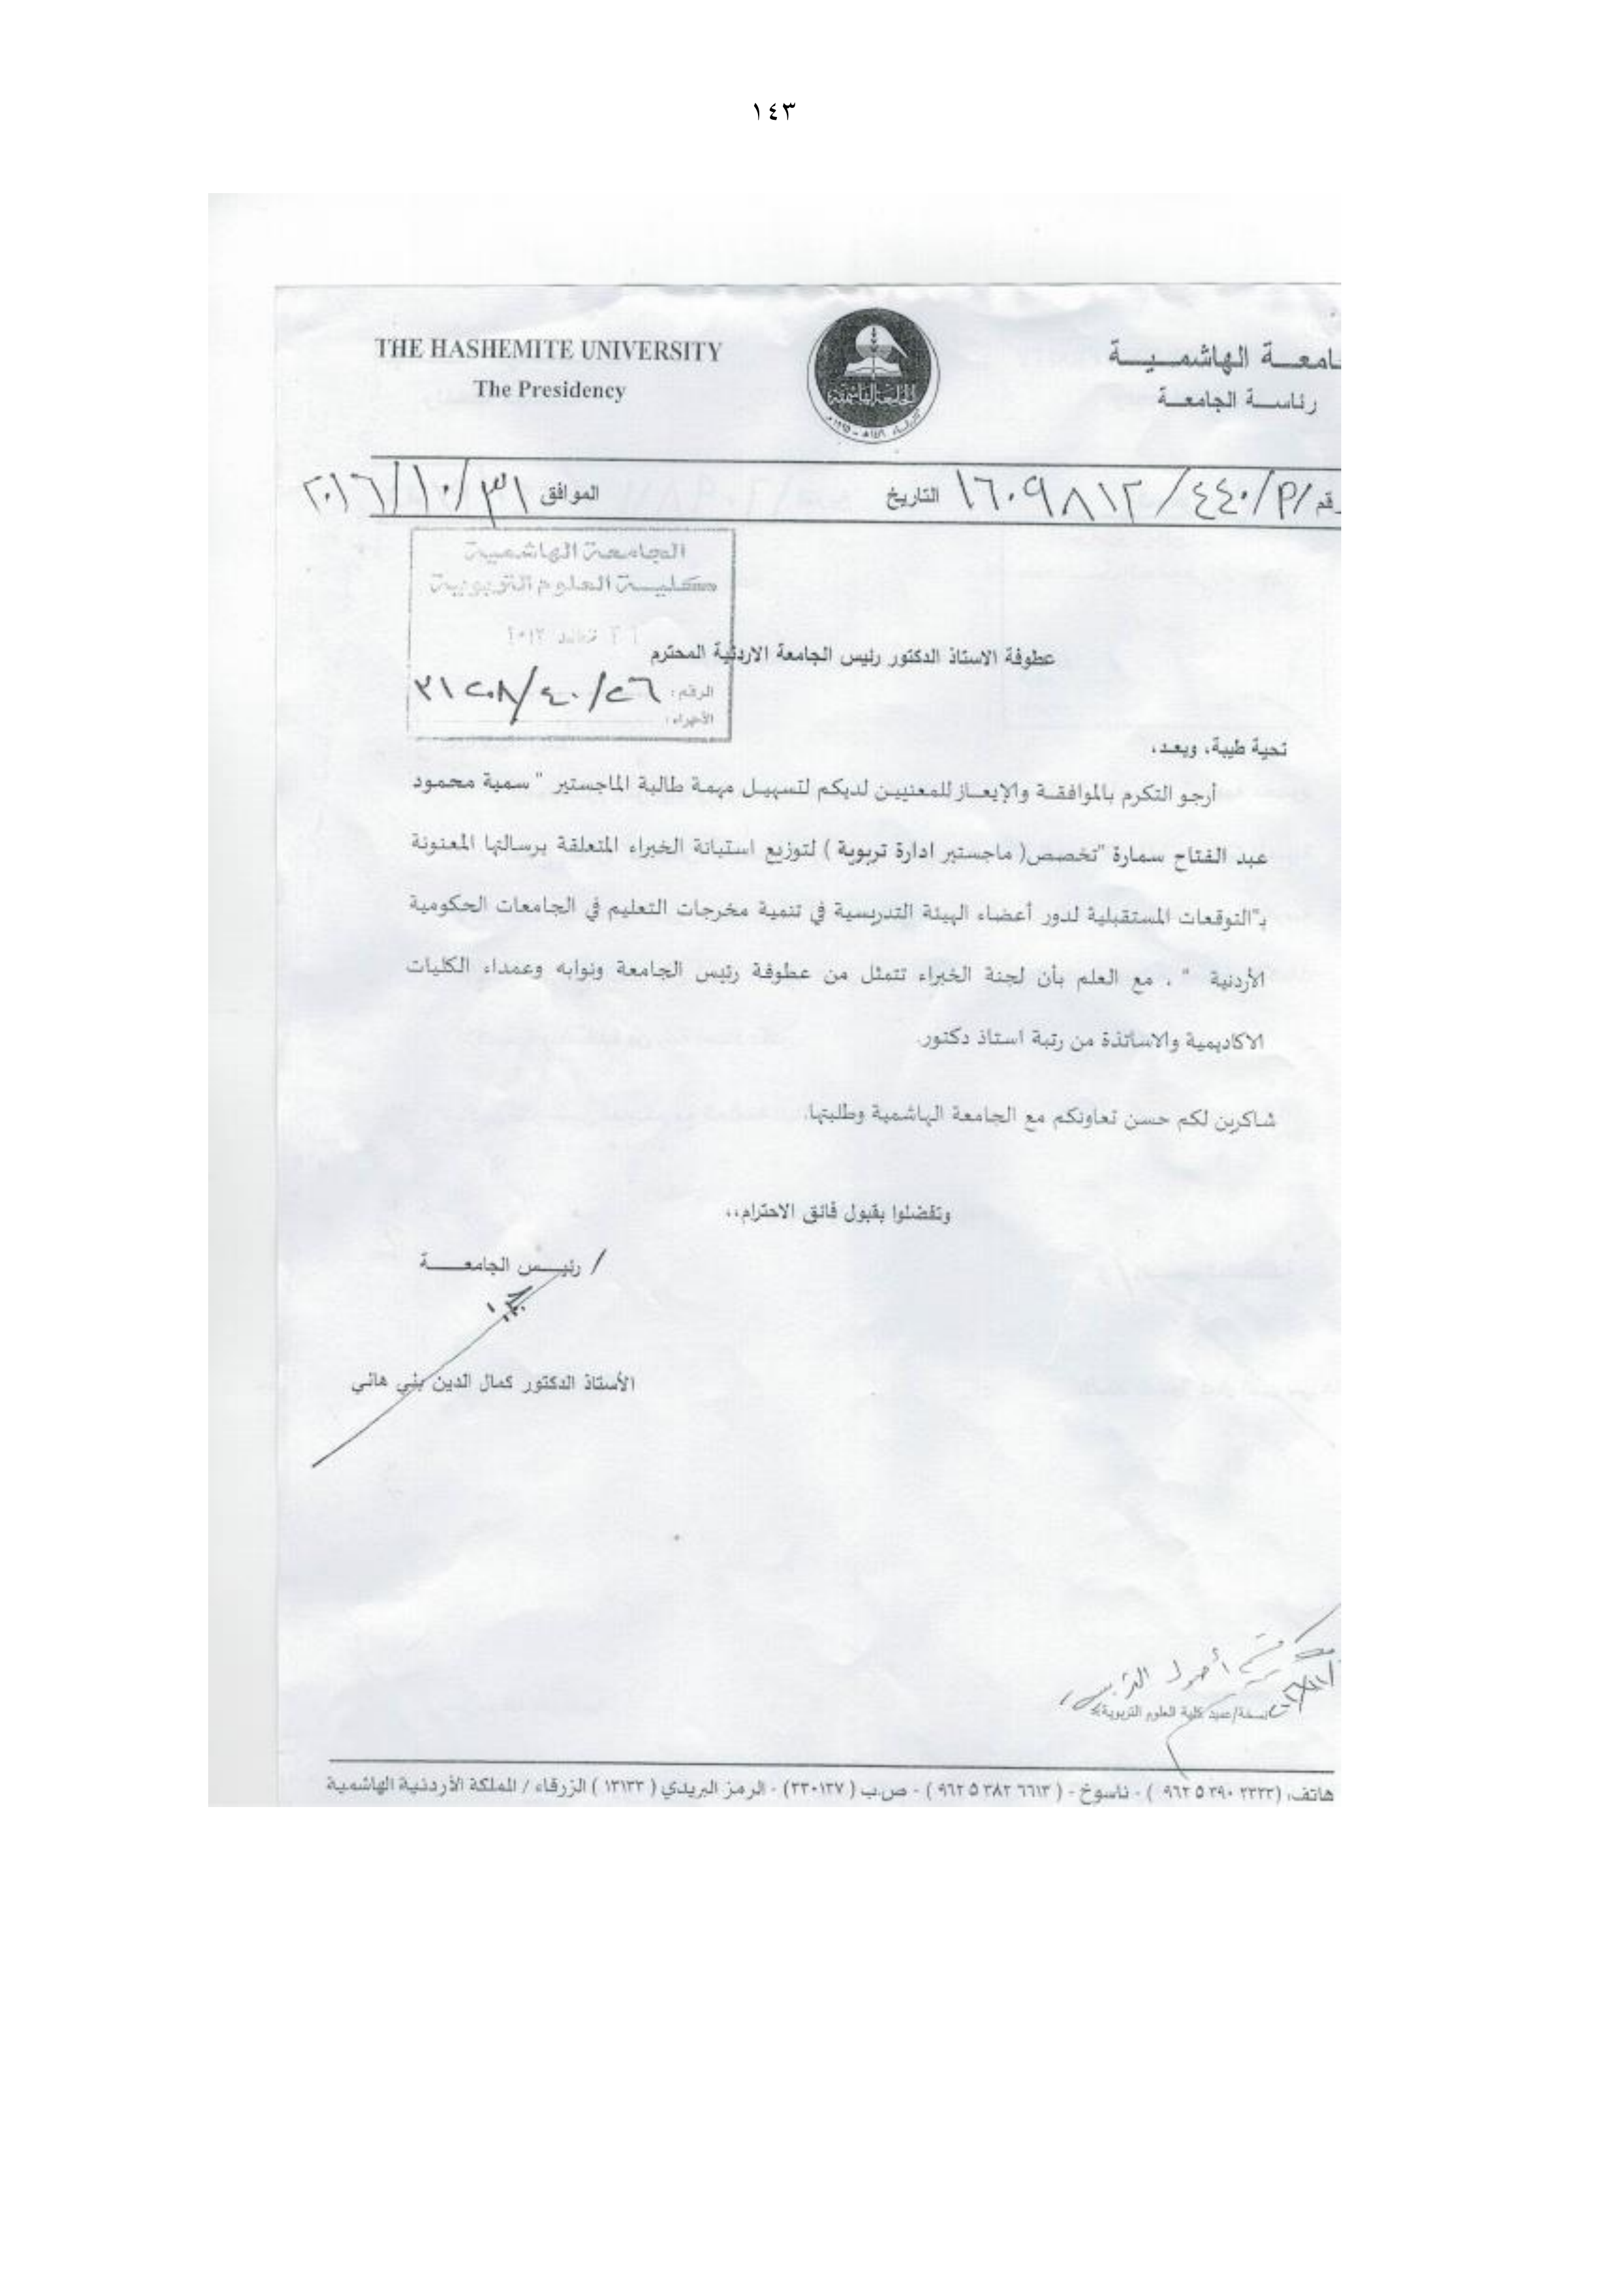 ١٤٣
THE HASHEMITE UNIVERSITY
The Presidency
امعة الهاشمية
رئاسة الجامعة
قم/م/٤٤٠/١٦٠٩٨١٢ التاريخ الموافق ٢٠١٦/١٠/٣١
الجامعة الهاشمية
كلية العلوم التربوية
الرقم: ٢٦/٤٠/٣١٢٠٨
عطوفة الاستاذ الدكتور رئيس الجامعة الاردنية المحترم
تحية طيبة، وبعد،
أرجو التكرم بالموافقة والإيعاز للمعنيين لديكم لتسهيل مهمة طالبة الماجستير " سمية محمود
عبد الفتاح سمارة "تخصص( ماجستير ادارة تربوية ) لتوزيع استبانة الخبراء المتعلقة برسالتها المعنونة
بـ"التوقعات المستقبلية لدور أعضاء الهيئة التدريسية في تنمية مخرجات التعليم في الجامعات الحكومية
الأردنية " . مع العلم بأن لجنة الخبراء تتمثل من عطوفة رئيس الجامعة ونوابه وعمداء الكليات
الاكاديمية والاساتذة من رتبة استاذ دكتور.
شاكرين لكم حسن تعاونكم مع الجامعة الهاشمية وطلبتها.
وتفضلوا بقبول فائق الاحترام،،
/ رئيس الجامعة
الأستاذ الدكتور كمال الدين بني هاني
أصول التربية
نسخة/عميد كلية العلوم التربوية
هاتف: (٣٣٣٣ ٣٩٠ ٥ ٩٦٢ ) - ناسوخ - ( ٦٦١٣ ٣٨٢ ٥ ٩٦٢ ) - ص.ب ( ٣٣٠١٢٧) - الرمز البريدي ( ١٣١٣٣ ) الزرقاء / المملكة الأردنية الهاشمية